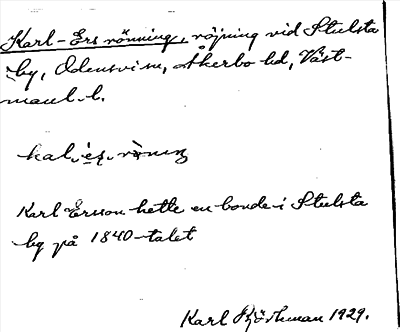 Karl-Ers rönning, röjning vid Stulsta
by, Odensvi sn, Åkerbo hd, Väst-
manl. l.
kal. es. röning
Karl Ersson hette en bonde i Stulsta
by på 1840-talet
Karl Björkman 1929.